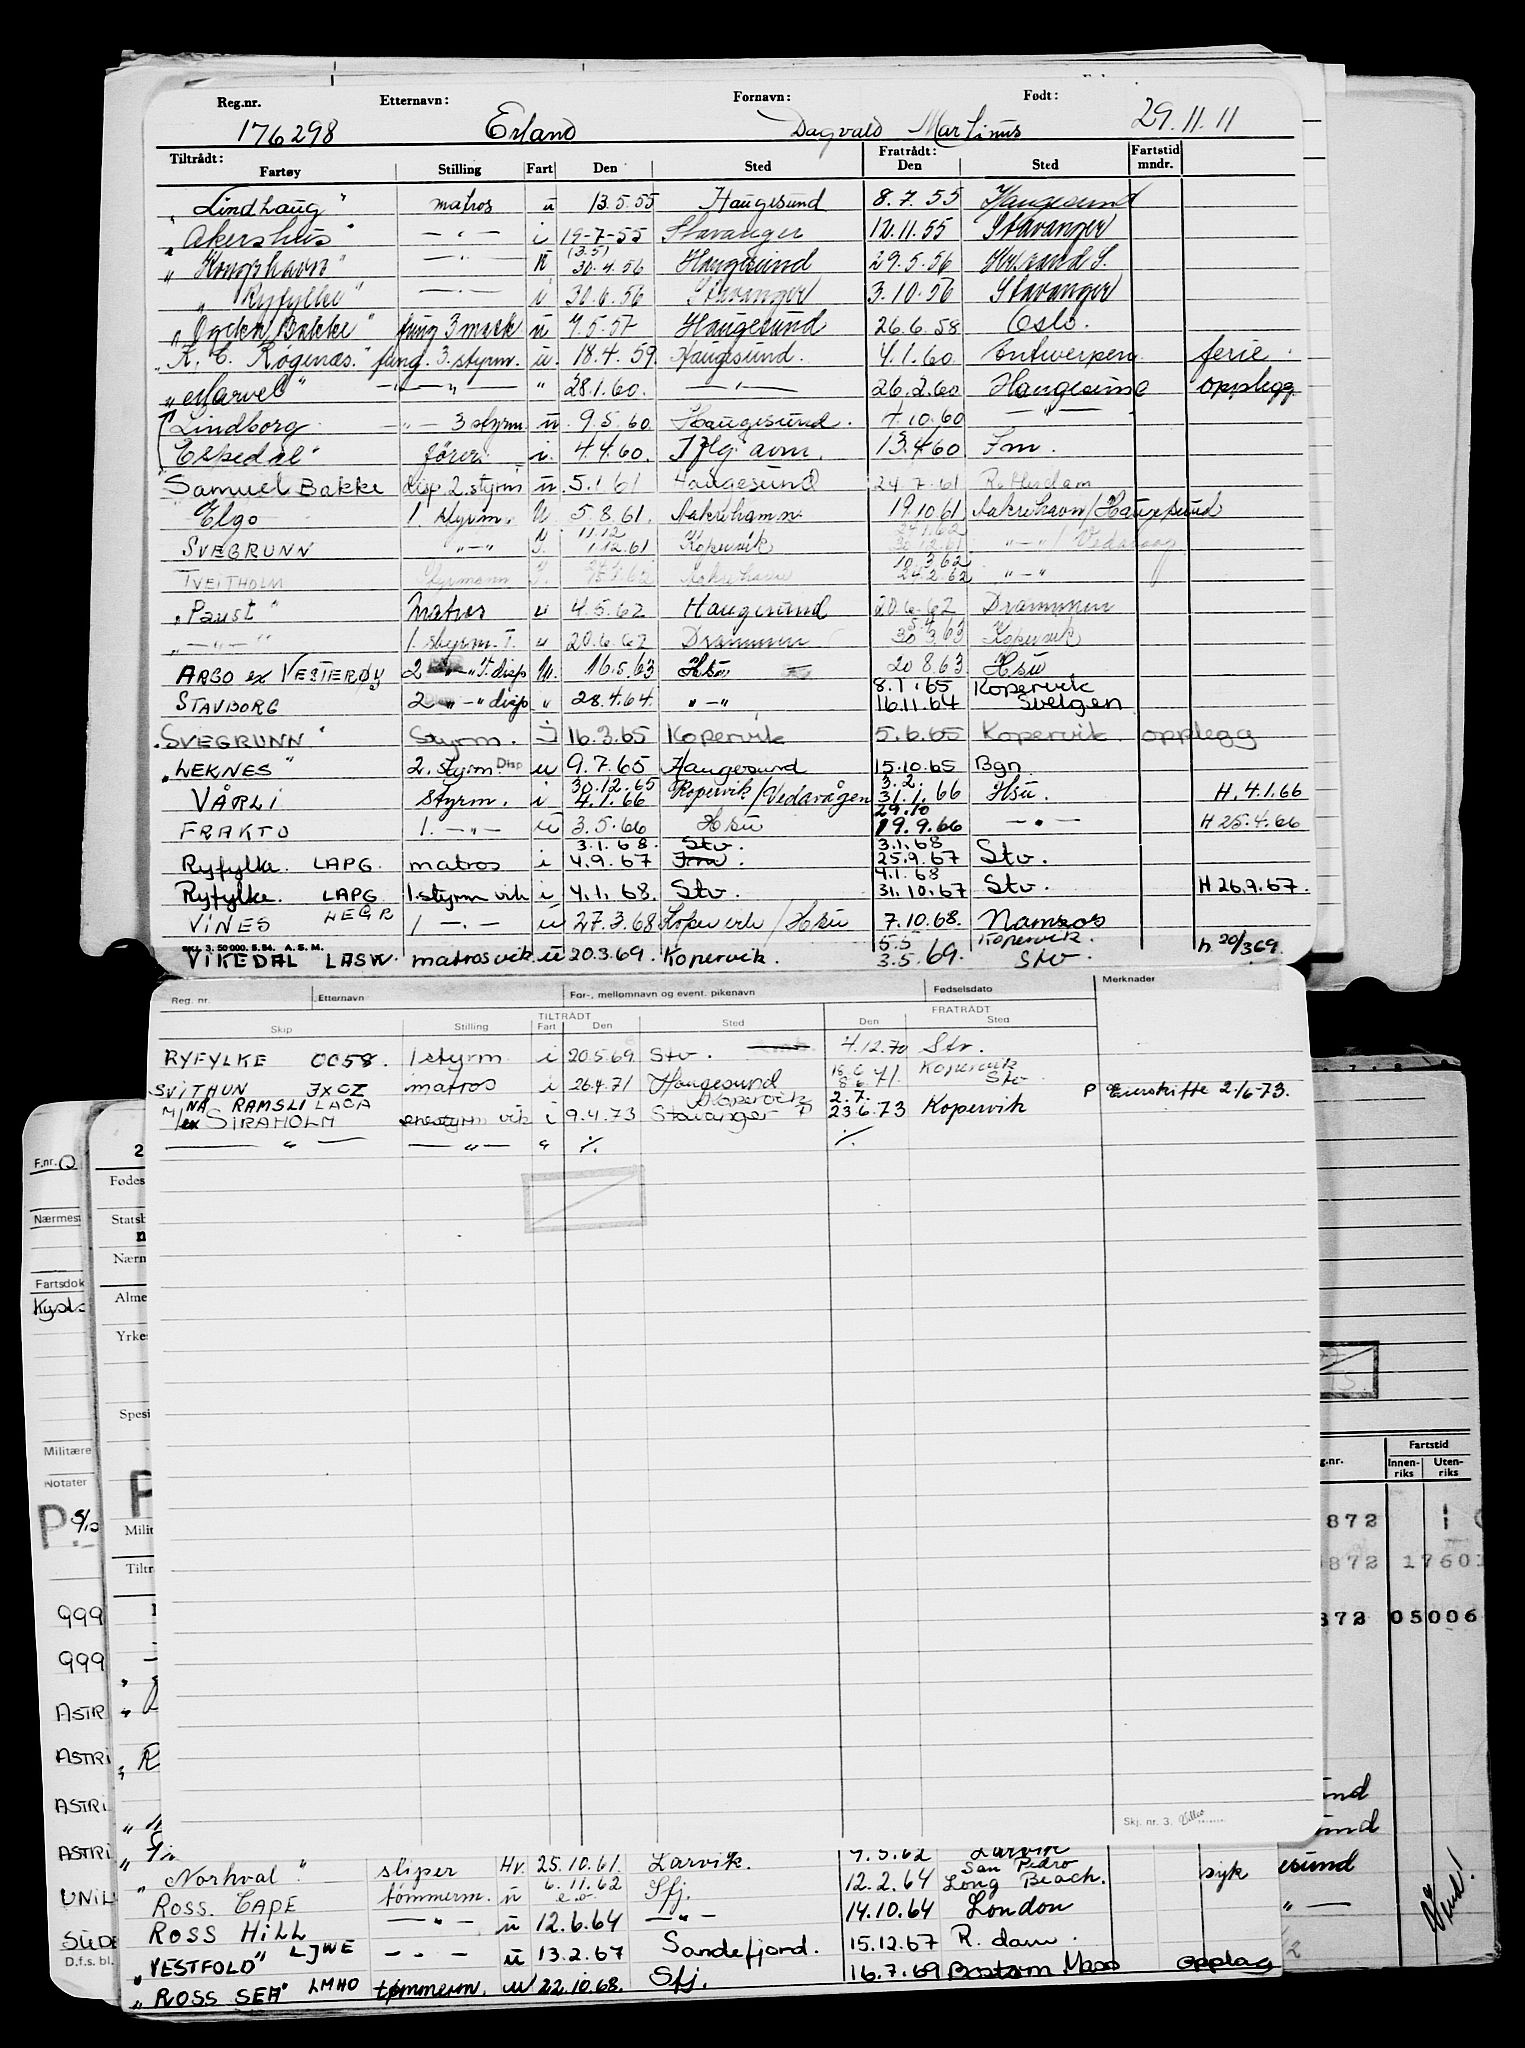 Reg.nr. Etternavn: Fornavn: Født:
176298 Erland Dagvald Martinus 29.11.11
Tiltrådt: Fratrådt: Fartstid
Fartøy Stilling Fart Den Sted Den Sted mndr.
"Lindhaug" matros u 13.5.55 Haugesund 8.7.55 Haugesund
"Akershus" — " — i 19-7-55 Stavanger 12.11.55 Stavanger
(3.5)
" " — " — 30.4.56 Haugesund 29.5.56 Kr.sand S.
"Ryfylke" — " — i 30.6.56 Stavanger 3.10.56 Stavanger
" Bakke" fung 3 mask u 7.5.57 Haugesund 26.6.58 Oslo.
"K. C. Rogenæs." fung. 3. styrm. u. 18.4.59. Haugesund. 4.1.60. Antwerpen ferie.
"Marvel" — " — " 28.1.60. — " — 26.2.60 Haugesund opplegg
Lindborg — " — 3 styrm. u. 9.5.60 Haugesund. 7.10.60 — " —
"Espedal" fører. i. 4.4.60. 13.4.60
Samuel Bakke disp. 2. styrm u. 5.1.61 Haugesund 24.7.61 Rotterdam
Elgo 1. styrm. U 5.8.61. Aakrehamn 19.10.61 Aakrehavn/Haugesund
11.12 27.1.62
SVEGRUNN " — " 1.12.61 Kopervik 30.12.61 " — " / Vedavaag
10.3.62
TVEITHOLM Styrmann Aakrehavn 24.2.62 " — "
"Faust" Matros u 4.5.62 Haugesund 20.6.62 Drammen
5.4
" — " — " 1. styrm. T. u 20.6.62 Drammen 30.3.63 Kopervik
ARGO ex VESTERØY 2 — " T. disp U. 16.5.63 Hsu 20 8.63 Hsu
8.1.65 Kopervik
STAVBORG 2 " — " disp " 28.4.64. " — " 16.11.64 Svelgen
"SVEGRUNN" Styrm. I 16.3.65 Kopervik 5.6.65 Kopervik. opplegg
"LEKNES" 2. styrm. Disp u 9.7.65 Haugesund 15.10.65 Bgn
30.12.65 3.2.
VÅRLI styrm. i 4.1.66 Kopervik/Vedavågen 31.1.66 Hsu. H. 4.1.66
29.10
FRAKTO 1. — " — u 3.5.66 Hsu 19.9.66 — " — H 25.4.66
3.1.68. Stv. 3.1.68
Ryfylke. LAPG. matros i 4.9.67 25.9.67 Stv.
4.1.68
Ryfylke. LAPG 1.styrm vik i 4.1.68. Stv. 31.10.67 Stv. H 26.9.67.
VINES LEGR 1 — " — u 27.3.68 Kopervik/Hsu 7.10.68. Namsos
SKJ. 3. 50 000. 5.54. A. S. M. 5.5 Kopervik.
VIKEDAL LASW. matros vik u 20.3.69. Kopervik. 3.5.69. Stv h 20/3 69.
Reg. nr. Etternavn For-, mellomnavn og event. pikenavn Fødselsdato Merknader
TILTRÅDT FRATRÅDT
Skip Stilling Fart Den Sted Den Sted
RYFYLKE OO58. 1 styrm. i 20.5.69. Stv. 4.12.70 Stv.
18.6 Kopervik
SVITHUN JXCZ matros i 26.4.71 Haugesund 8.6.71. Stv
NÅ RAMSLI LACA Kopervik 2.7. P Eierskifte 2/6-73.
M/ ex SIRAHOLM enestyrm vik i 9.4.73 Stavanger 23.6.73 Kopervik
— " — — " — " ./. ./.
F.nr.
Fødes
Nærmest
Statsb
Nærm
Fartsdok
Kysts
Alme
Yrke
Spesi
Militære
Notater
P
Milit
Tiltr
g.nr. Fartstid
Innenriks Utenriks
872 1
872 1760
872 05006
999
999
ASTR
ASTRI
ASTRI
ASTRI
UNIL
SUDE
D.f.s. bl.
Skj. nr. 3.
7.5.62 Larvik
"Norhval" sliper Hv. 25.10.61. Larvik. San Pedro
6.11.62
ROSS. CAPE tømmerm. u Sfj. 12.2.64 Long Beach. syk
ROSS HILL — " — u 12.6.64 — " — 14.10.64 London
"VESTFOLD" LJWE — " — u 13.2.67 Sandefjord. 15.12.67 R.dam.
"ROSS SEA" LMHO tømmerm. u 22.10.68. Sfj. 16.7.69 Boston Mass Opplag